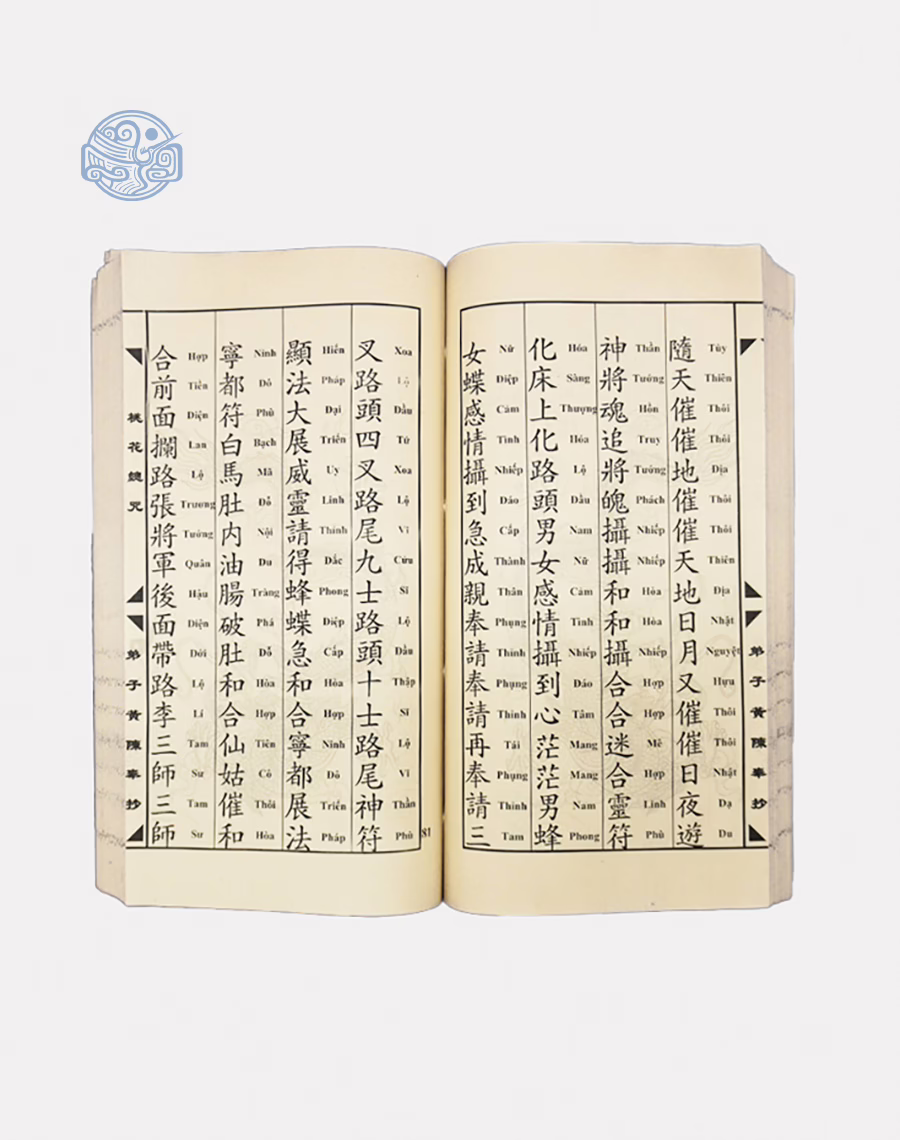 弟子黃陳奉抄
Tùy Thiên Thôi Thôi Địa Thôi Thôi Thiên Địa Nhật Nguyệt Hựu Thôi Thôi Nhật Dạ Du
隨天催催地催催天地日月又催催日夜遊
Thần Tướng Hồn Truy Tướng Phách Nhiếp Nhiếp Hòa Hòa Nhiếp Hợp Hợp Mê Hợp Linh Phù
神將魂追將魄攝攝和和攝合合迷合靈符
Hóa Sàng Thượng Hóa Lộ Đầu Nam Nữ Cảm Tình Nhiếp Đáo Tâm Mang Mang Nam Phong
化床上化路頭男女感情攝到心茫茫男蜂
Nữ Điệp Cảm Tình Nhiếp Đáo Cấp Thành Thân Phụng Thỉnh Phụng Thỉnh Tái Phụng Thỉnh Tam
女蝶感情攝到急成親奉請奉請再奉請三
81
Xoa Lộ Đầu Tứ Xoa Lộ Vĩ Cửu Sĩ Lộ Đầu Thập Sĩ Lộ Vĩ Thần Phù
叉路頭四叉路尾九士路頭十士路尾神符
Hiển Pháp Đại Triển Uy Linh Thỉnh Đắc Phong Điệp Cấp Hòa Hợp Ninh Đô Triển Pháp
顯法大展威靈請得蜂蝶急和合寧都展法
Ninh Đô Phù Bạch Mã Đỗ Nội Du Tràng Phá Đỗ Hòa Hợp Tiên Cô Thôi Hòa
寧都符白馬肚内油腸破肚和合仙姑催和
Hợp Tiền Diện Lan Lộ Trương Tướng Quân Hậu Diện Dới Lộ Lí Tam Sư Tam Sư
合前面攔路張將軍後面帶路李三師三師
桃花總咒
弟子黃陳奉抄